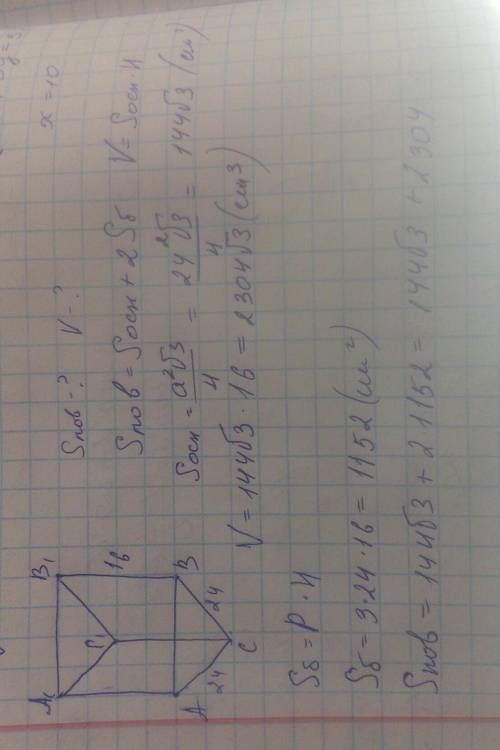 x = 10
Sпов-? V-?
Sпов = Sосн + 2Sб V = Sосн · H
Sосн = a²√3/4 = 24²√3/4 = 144√3 (см²)
V = 144√3 · 16 = 2304√3 (см³)
A₁ B₁
C₁
16
A B
24 24
C
Sб = P · H
Sб = 3·24·16 = 1152 (см²)
Sпов = 144√3 + 2·1152 = 144√3 + 2304